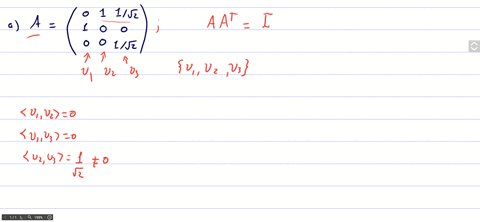 a) A = ( 0 1 1/√2 ; A A^T = I
1 0 0
0 0 1/√2 )
v₁ v₂ v₃ {v₁, v₂, v₃}
<v₁, v₂> = 0
<v₁, v₃> = 0
<v₂, v₃> = 1/√2 ≠ 0